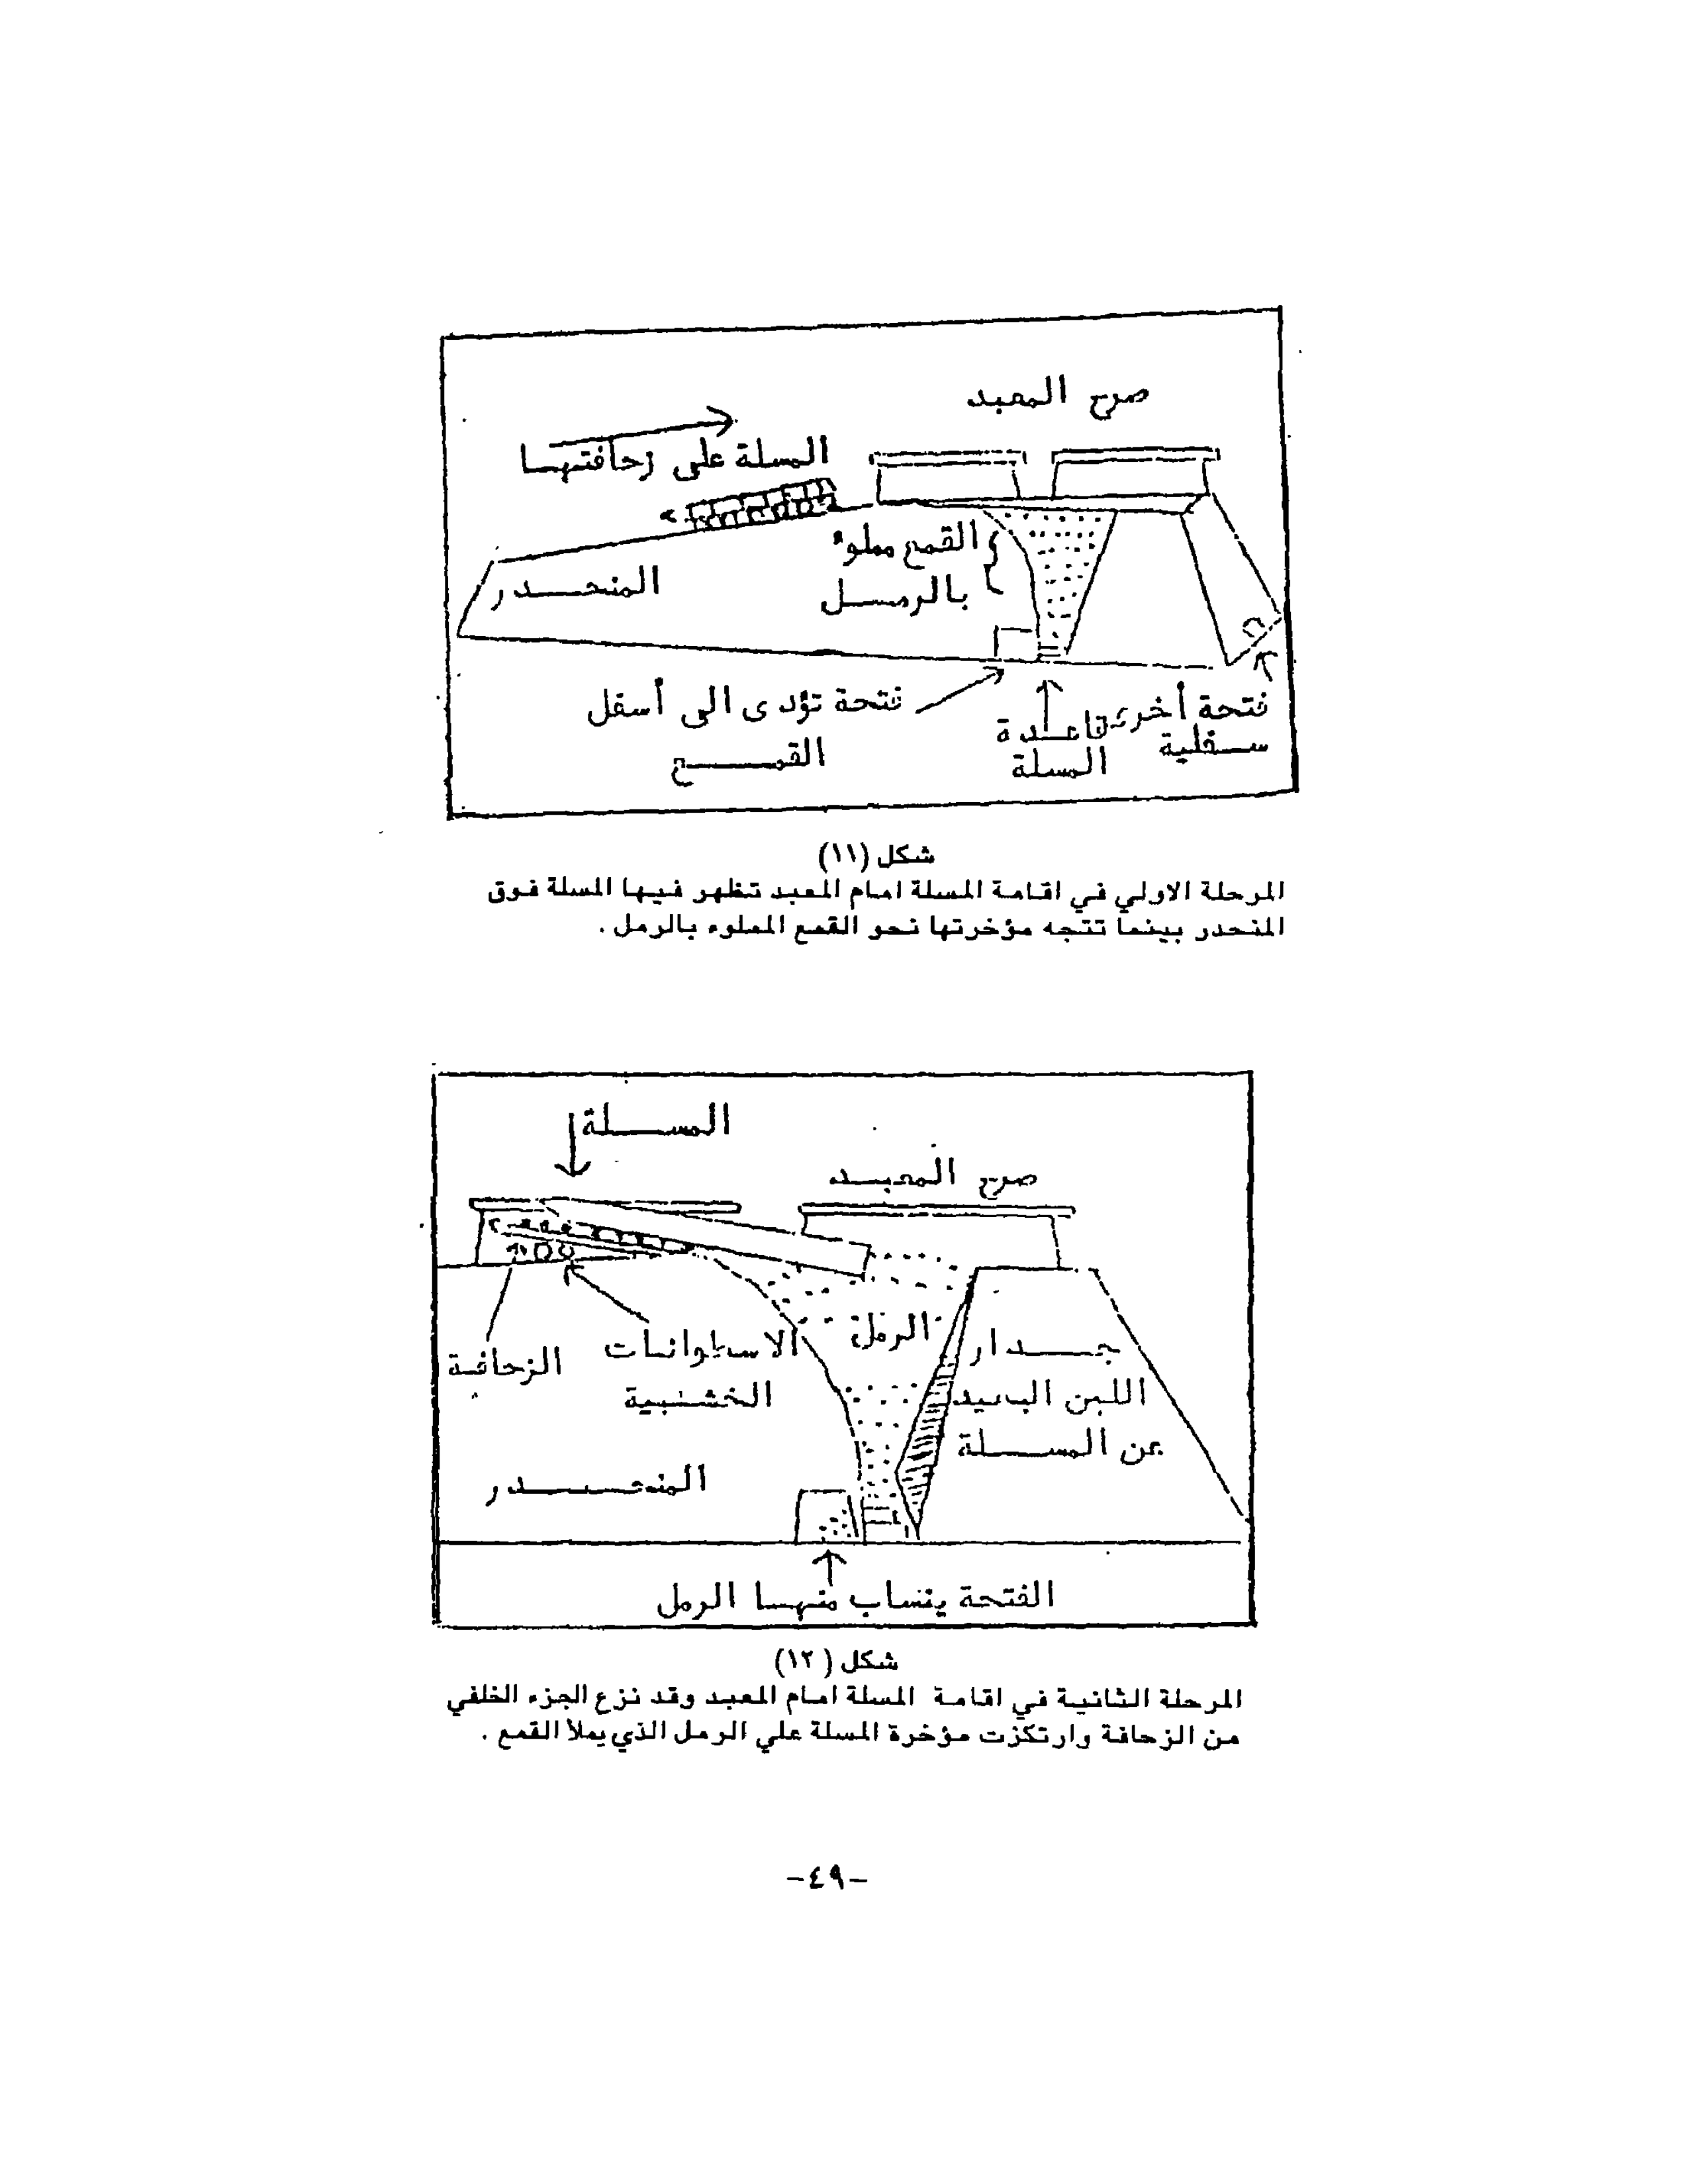 صرح المعبد
المسلة على زحافتها
القمع مملوء
بالرمل
المنحدر
فتحة تؤدى الى أسفل
القمع
قاعدة
المسلة
فتحة أخرى
سفلية
شكل (١١)
المرحلة الاولي في اقامة المسلة امام المعبد تظهر فيها المسلة فوق
المنحدر بينما تتجه مؤخرتها نحو القمع المملوء بالرمل .
المسلة
صرح المعبد
الرمل
جدار
اللبن البعيد
عن المسلة
الاسطوانات
الخشبية
الزحافة
المنحدر
الفتحة ينساب منها الرمل
شكل (١٢)
المرحلة الثانية في اقامة المسلة امام المعبد وقد نزع الجزء الخلفي
من الزحافة وارتكزت مؤخرة المسلة علي الرمل الذي يملأ القمع .
-٤٩-